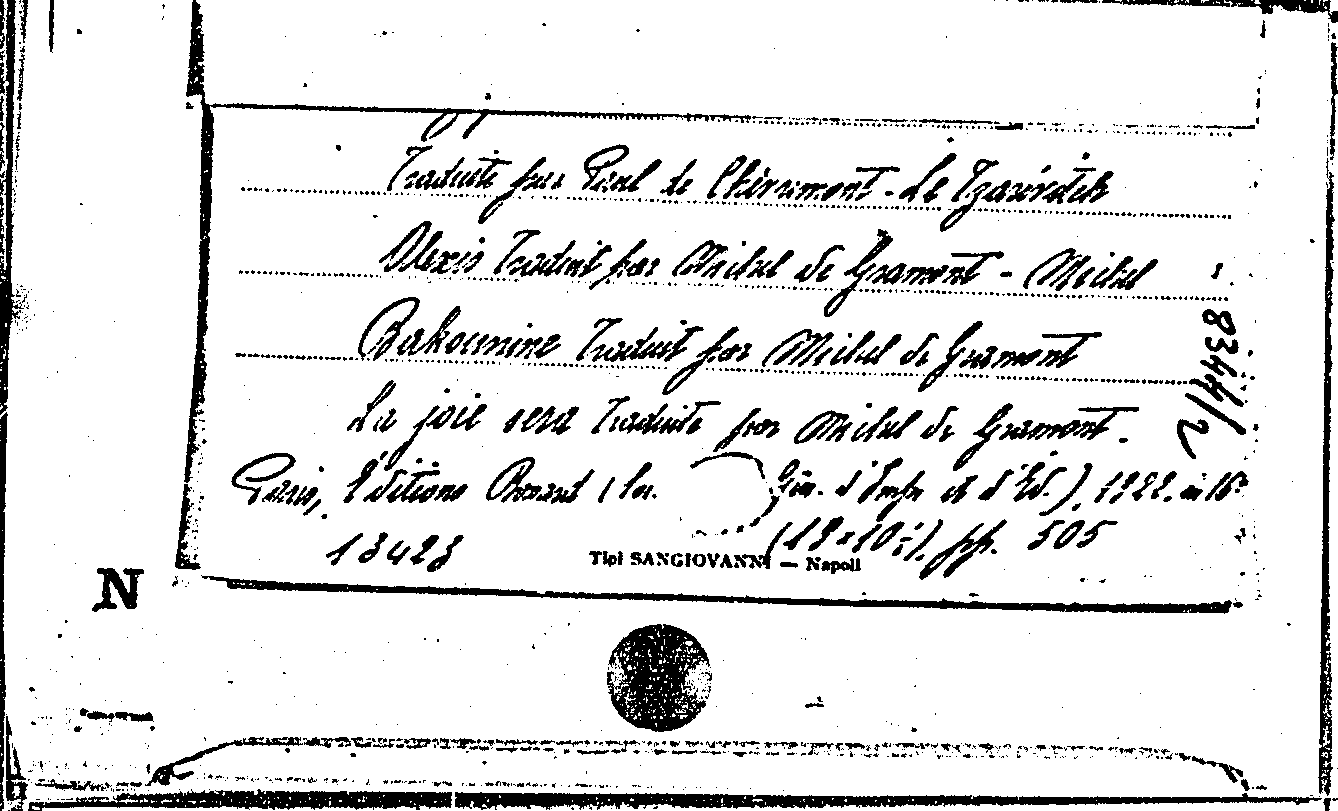 Traduite par Paul de Chèramont - Le Tzarévitch
Alexis Traduit par Michel de Gramont - Michel
Bakounine Traduit par Michel de Gramont
La joie sera Traduite par Michel de Gramont.
Paris, Éditions Bossard (Gén. d'Imp. et d'Éd.), 1922. in 16°
(19×10), pp. 505
13423
Tipi SANGIOVANNI — Napoli
N